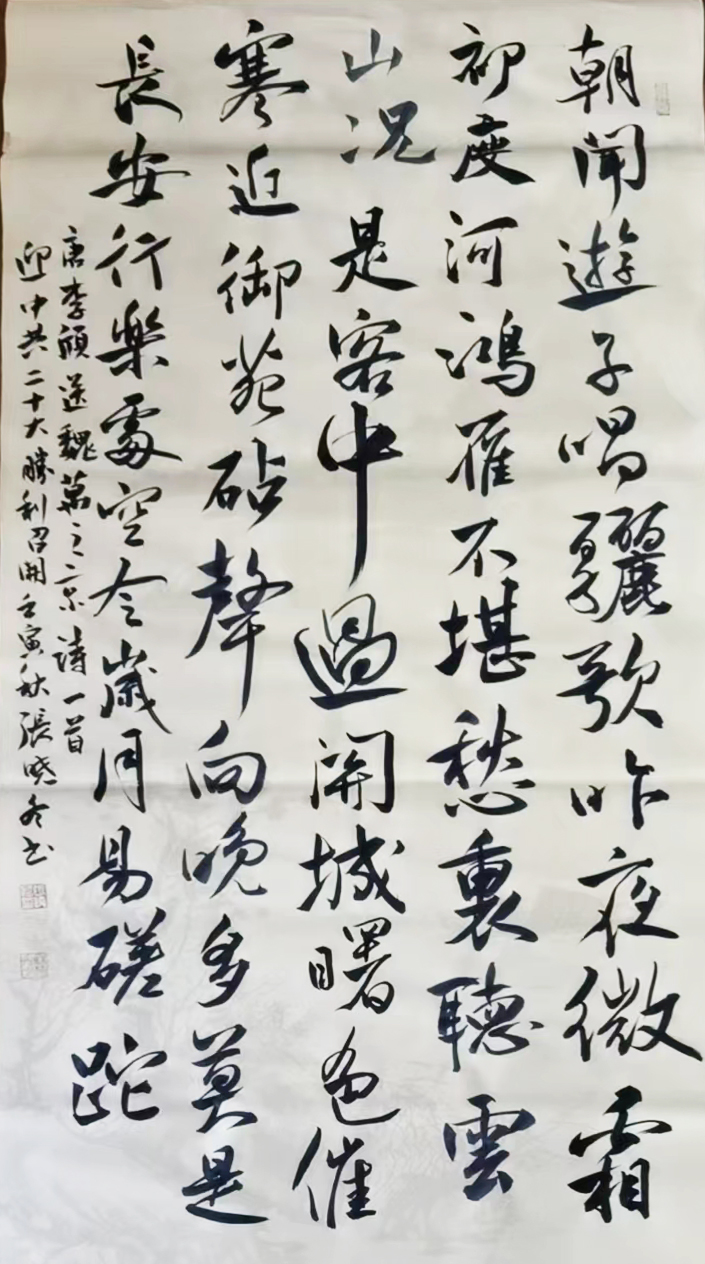 朝聞遊子唱驪歌昨夜微霜
初度河鴻雁不堪愁裏聽雲
山況是客中過關城曙色催
寒近御苑砧聲向晚多莫是
長安行樂處空令歲月易磋跎
唐李頎送魏萬之京詩一首
迎中共二十大勝利召開壬寅秋張曉冬書